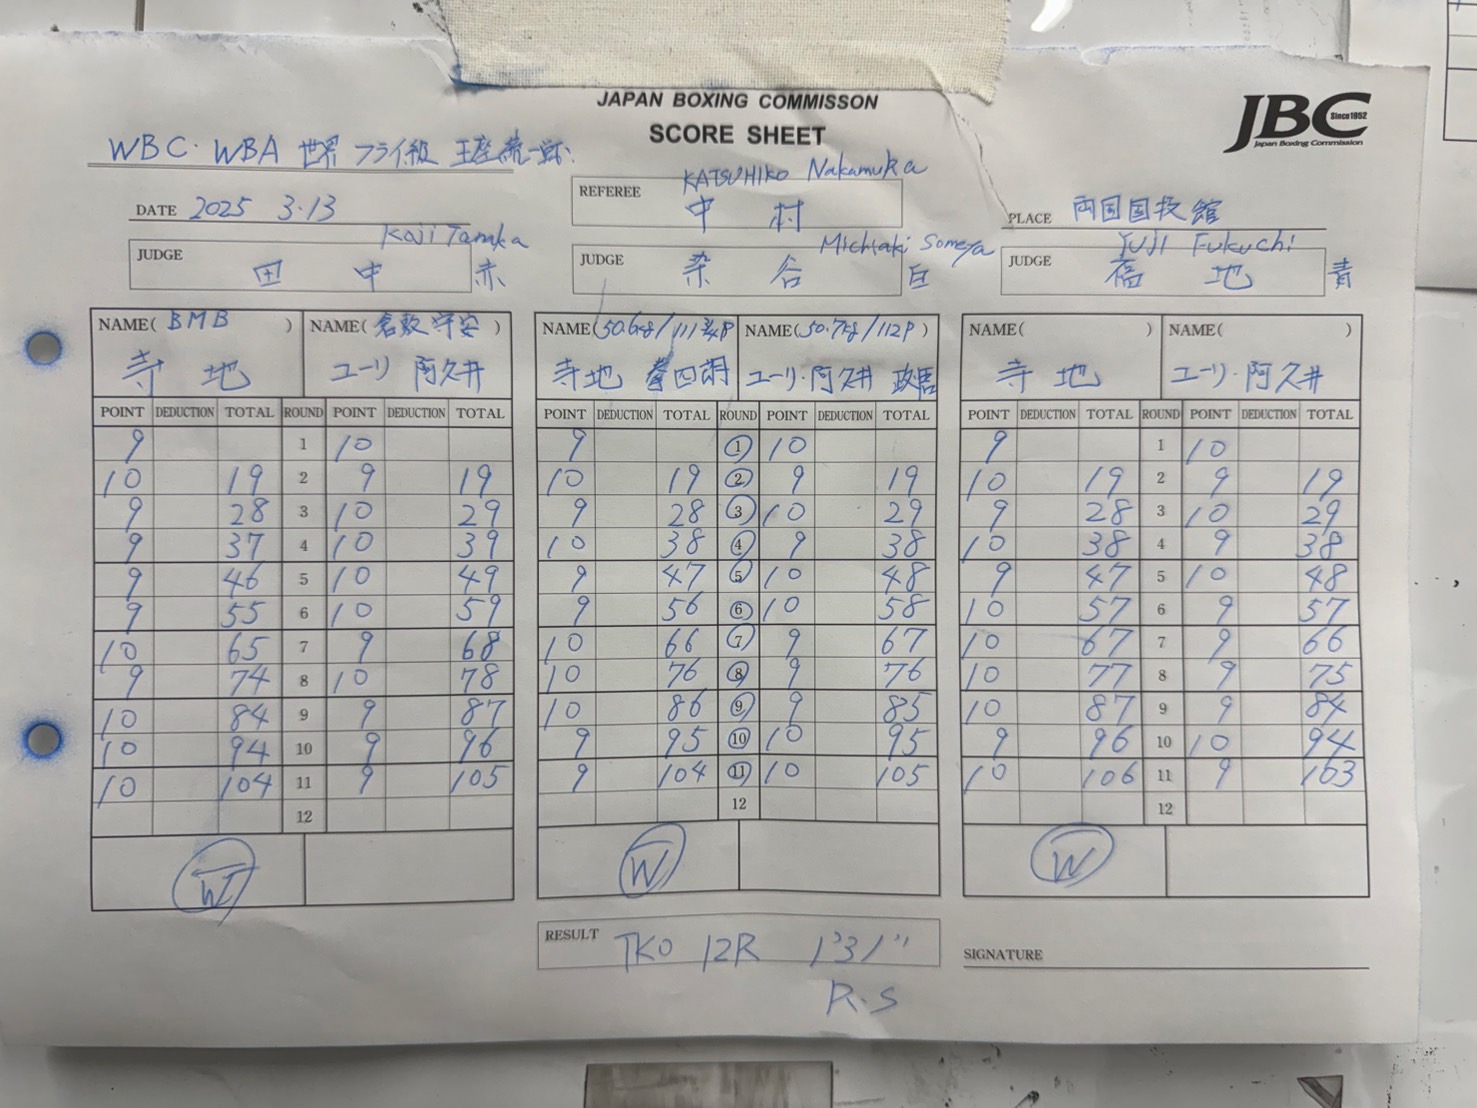 JAPAN BOXING COMMISSON
SCORE SHEET
JBC Since1952
Japan Boxing Commission
WBC・WBA 世界フライ級 王座統一戦
DATE 2025 3.13
REFEREE KATSUHIKO Nakamura
中村
PLACE 両国国技館
JUDGE Koji Tanaka
田中 赤
JUDGE Michiaki Someya
染谷 白
JUDGE Yuji Fukuchi
福地 青
NAME( BMB ) NAME( 倉敷守安 )
寺地 ユーリ 阿久井
POINT DEDUCTION TOTAL ROUND POINT DEDUCTION TOTAL
9 1 10
10 19 2 9 19
9 28 3 10 29
9 37 4 10 39
9 46 5 10 49
9 55 6 10 59
10 65 7 9 68
9 74 8 10 78
10 84 9 9 87
10 94 10 9 96
10 104 11 9 105
12
W
NAME(50.6kg/111¾P) NAME(50.7kg/112P)
寺地 拳四朗 ユーリ・阿久井 政悟
POINT DEDUCTION TOTAL ROUND POINT DEDUCTION TOTAL
9 1 10
10 19 2 9 19
9 28 3 10 29
10 38 4 9 38
9 47 5 10 48
9 56 6 10 58
10 66 7 9 67
10 76 8 9 76
10 86 9 9 85
9 95 10 10 95
9 104 11 10 105
12
W
NAME( ) NAME( )
寺地 ユーリ・阿久井
POINT DEDUCTION TOTAL ROUND POINT DEDUCTION TOTAL
9 1 10
10 19 2 9 19
9 28 3 10 29
10 38 4 9 38
9 47 5 10 48
10 57 6 9 57
10 67 7 9 66
10 77 8 9 75
10 87 9 9 84
9 96 10 10 94
10 106 11 9 103
12
W
RESULT TKO 12R 1'31"
R.S
SIGNATURE